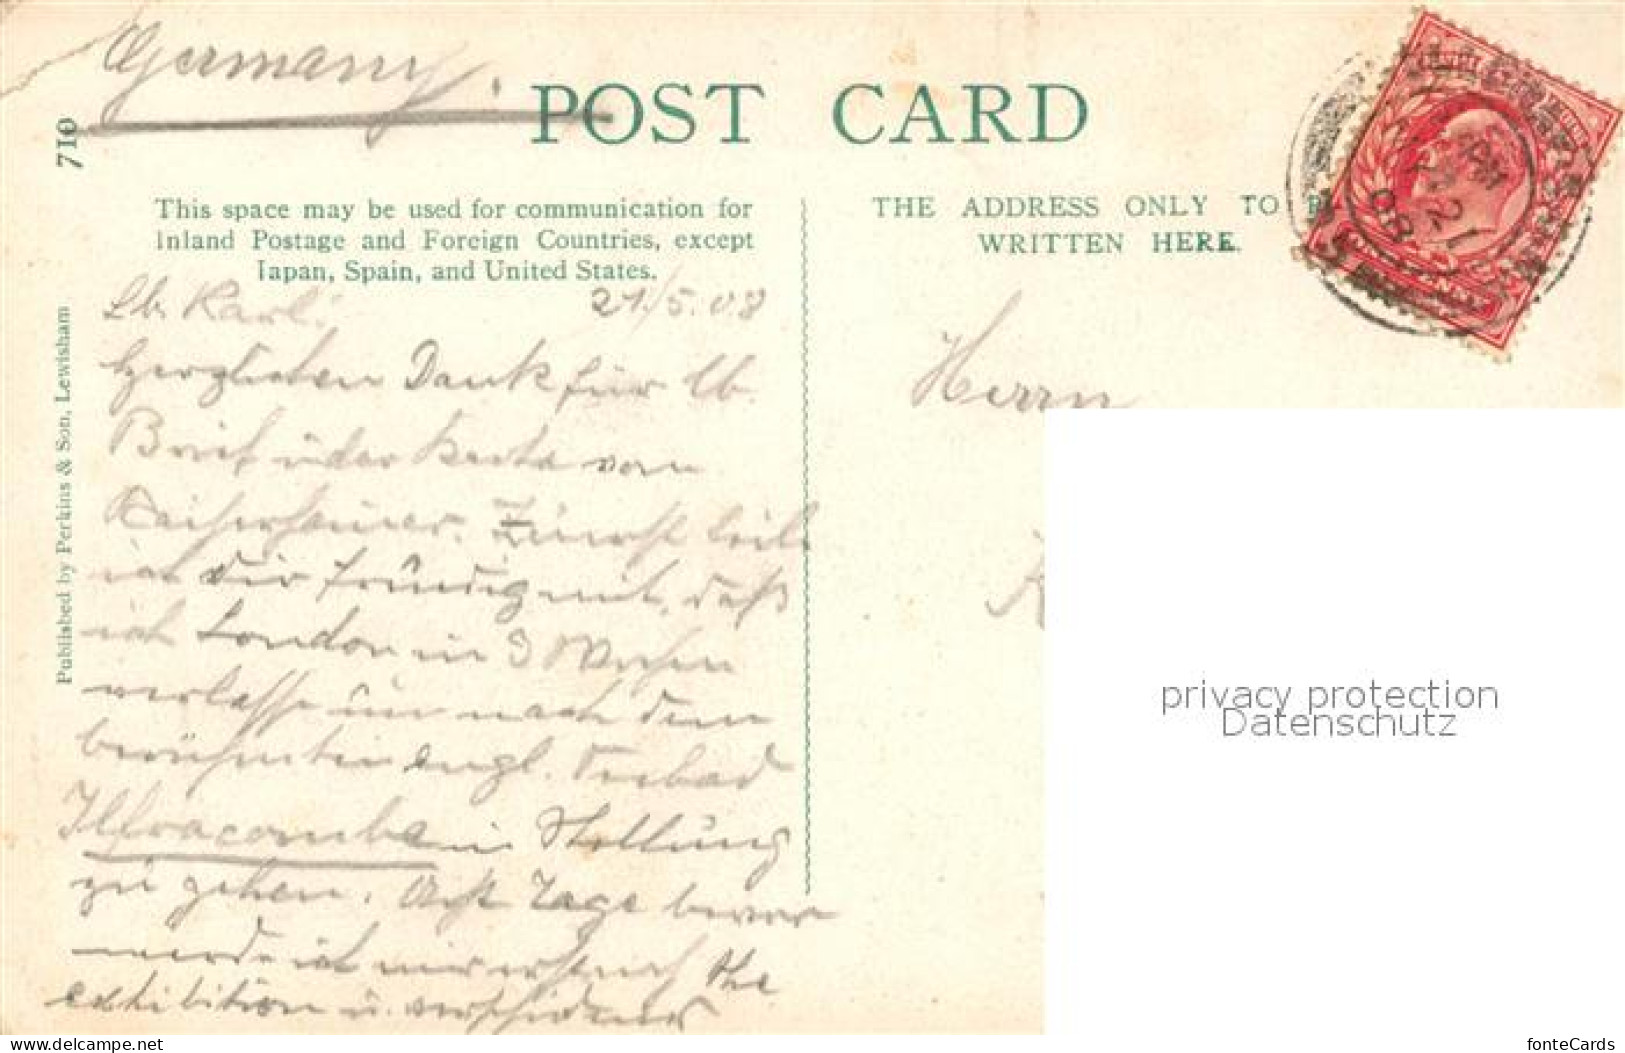 Germany.
POST CARD
710
This space may be used for communication for
Inland Postage and Foreign Countries, except
Japan, Spain, and United States.
THE ADDRESS ONLY TO BE
WRITTEN HERE.
Published by Perkins & Son, Lewisham
21./5.08
Lb. Karl!
Herzlichen Dank für lb.
Brief u. der Karte von
Zunächst teile
ich dir freudig mit, daß
ich London in 3 Wochen
verlasse um nach dem
berühmten engl. Seebad
Ilfracombe in Stellung
zu gehen. Acht Tage bevor
werde ich mir erst noch the
exhibition u. verschiedene
Herrn
MY 21
08
privacy protection
Datenschutz
www.delcampe.net
fonteCards